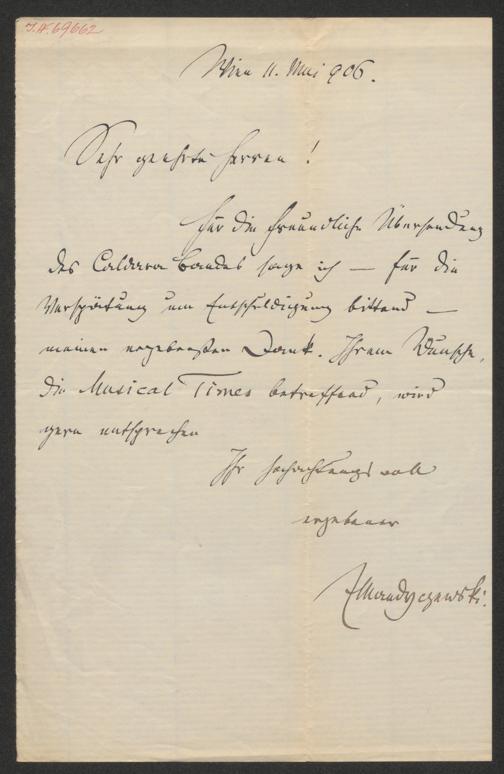 I.N. 69662
Wien 11. Mai 906.
Sehr geehrte Herren!
Für die freundliche Übersendung
des Caldara Bandes sage ich — für die
Verspätung um Entschuldigung bittend —
meinen ergebensten Dank. Ihrem Wunsche,
die Musical Times betreffend, wird
gern entsprechen
Ihr hochachtungsvoll
ergebener
EMandyczewski.